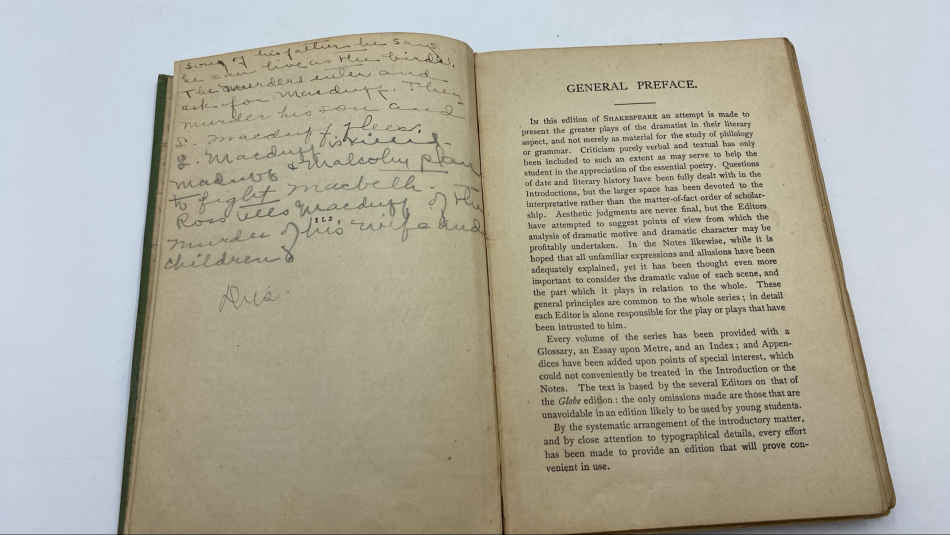 song of his father he says
he can live as the birds.
The murders enter and
ask for Macduff. They
murder his son and
S. Macduff flees.
2. Macduff is
& Malcolm plan
to fight Macbeth. The
Ross tells Macduff of the
murder of his wife and
children
GENERAL PREFACE.
In this edition of SHAKESPEARE an attempt is made to
present the greater plays of the dramatist in their literary
aspect, and not merely as material for the study of philology
or grammar. Criticism purely verbal and textual has only
been included to such an extent as may serve to help the
student in the appreciation of the essential poetry. Questions
of date and literary history have been fully dealt with in the
Introductions, but the larger space has been devoted to the
interpretative rather than the matter-of-fact order of scholar-
ship. Aesthetic judgments are never final, but the Editors
have attempted to suggest points of view from which the
analysis of dramatic motive and dramatic character may be
profitably undertaken. In the Notes likewise, while it is
hoped that all unfamiliar expressions and allusions have been
adequately explained, yet it has been thought even more
important to consider the dramatic value of each scene, and
the part which it plays in relation to the whole. These
general principles are common to the whole series; in detail
each Editor is alone responsible for the play or plays that have
been intrusted to him.
Every volume of the series has been provided with a
Glossary, an Essay upon Metre, and an Index; and Appen-
dices have been added upon points of special interest, which
could not conveniently be treated in the Introduction or the
Notes. The text is based by the several Editors on that of
the Globe edition: the only omissions made are those that are
unavoidable in an edition likely to be used by young students.
By the systematic arrangement of the introductory matter,
and by close attention to typographical details, every effort
has been made to provide an edition that will prove con-
venient in use.